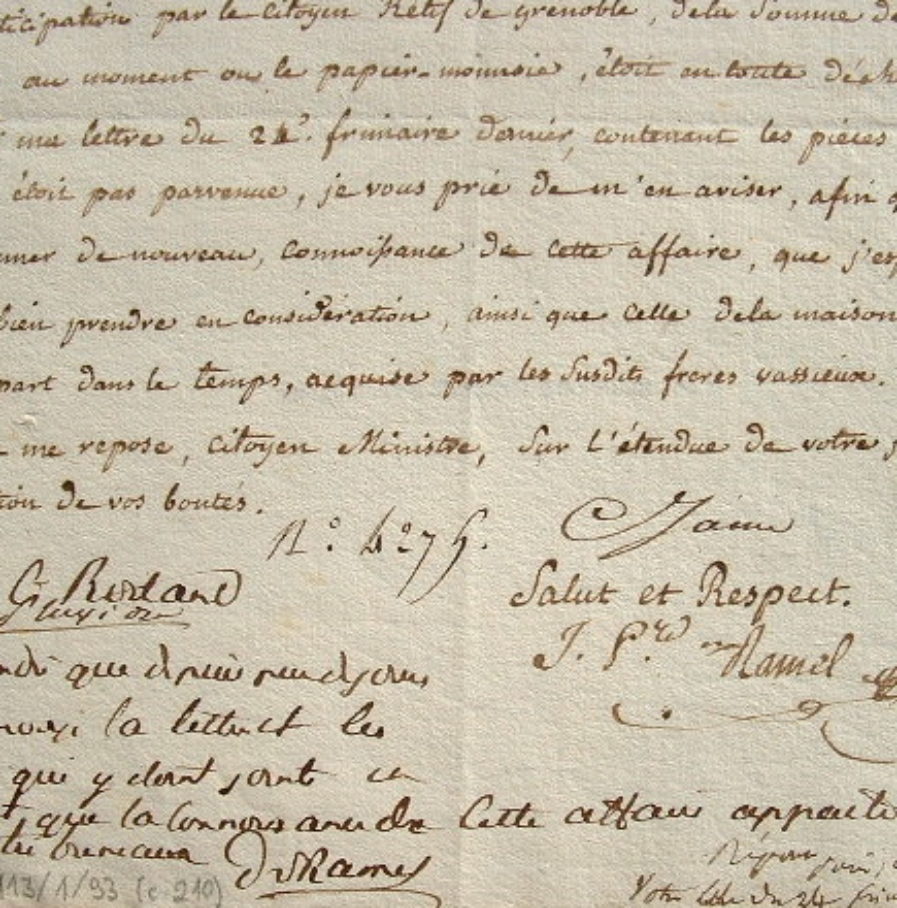 ticipation par le Citoyen Retif de grenoble, dela Somme de
au moment ou le papier-monnoie, étoit en toute déch
ma lettre du 24. frimaire dernier, contenant les pièces
étoit pas parvenue, je vous prie de m'en aviser, afin q
nner de nouveau, connoissance de cette affaire, que j'esp
bien prendre en considération, ainsi que celle dela maison
part dans le temps, acquise par les Susdits freres vassieux.
me repose, Citoyen Ministre, Sur l'étendue de votre
tion de vos bontés.
N.º 4275.
Salut et Respect.
J. P.re Ramel
que depuis
la lettre et les
qui y dont sont
que la connoissance de Cette affaire appartie
bureaux D. Ramel
113/1/93 (c 210)
Votre du 24 frim